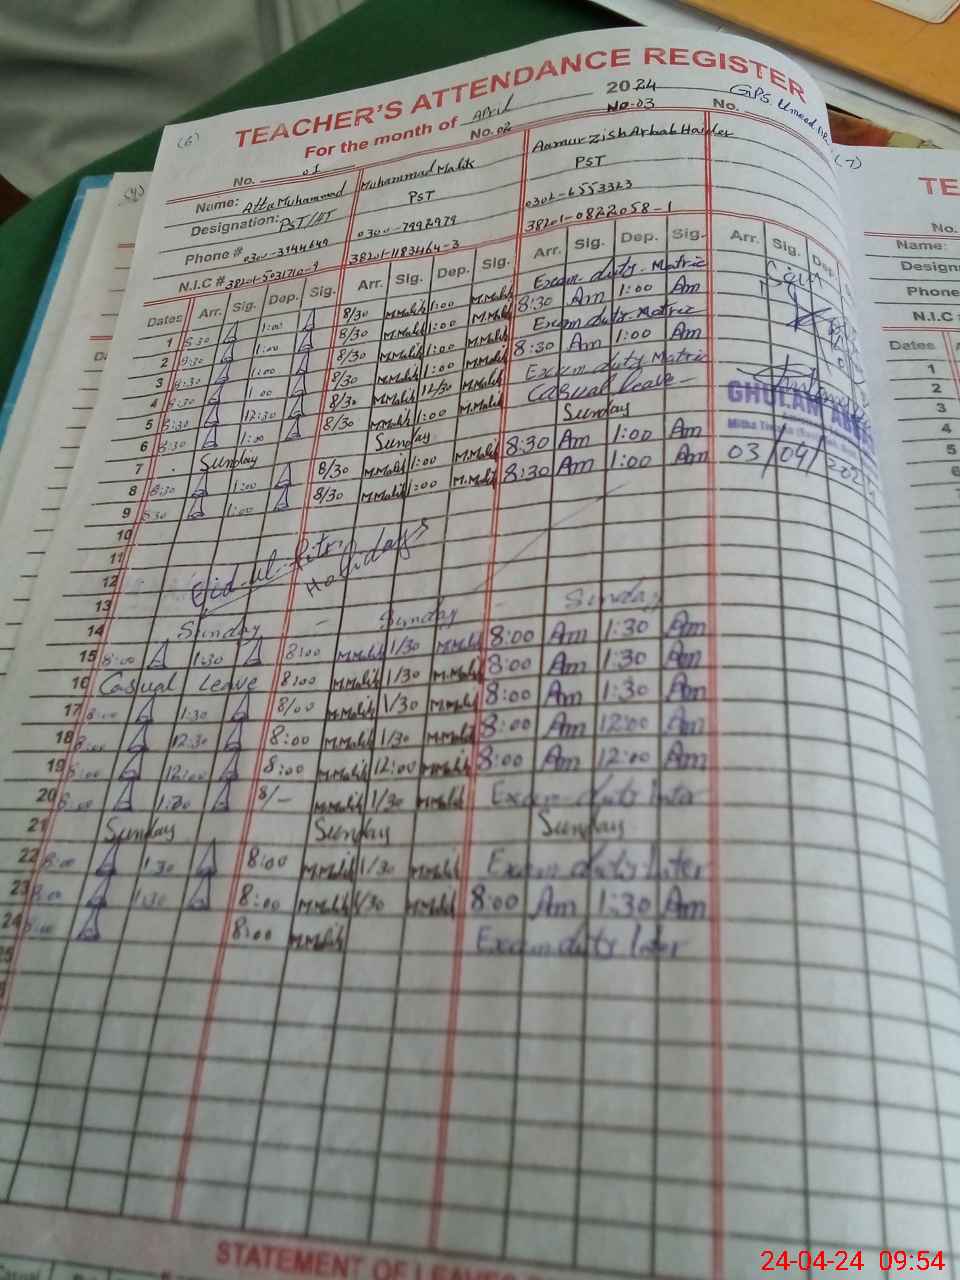 (6)
TEACHER'S ATTENDANCE REGISTER
For the month of April 2024
No. 01 No. 02 No-03 No.
(7)
Name: Atta Muhammad Muhammad Malik
Designation: PST/HT PST PST
Phone # 0300-7992979 0302-6553323
N.I.C # 38201-1183464-3 38201-0822058-1
Dates Arr. Sig. Dep. Sig. Arr. Sig. Dep. Sig. Arr. Sig. Dep. Sig. Arr. Sig. Dep.
1 8:30 1:00 8/30 M.Malik 1:00 M.Malik Exam duty Matric
2 8:30 1:00 8/30 M.Malik 1:00 M.Malik 8:30 Am 1:00 Am
3 8:30 1:00 8/30 M.Malik 1:00 M.Malik Exam duty Matric
4 8:30 1:00 8/30 M.Malik 1:00 M.Malik 8:30 Am 1:00 Am
5 8:30 12:30 8/30 M.Malik 12/30 M.Malik Exam duty Matric
6 8:30 1:00 8/30 M.Malik 1:00 M.Malik Casual leave
7 Sunday Sunday Sunday
8 8:30 1:00 8/30 M.Malik 1:00 M.Malik 8:30 Am 1:00 Am
9 8:30 1:00 8/30 M.Malik 1:00 M.Malik 8:30 Am 1:00 Am
GHULAM
03/04/2024
10
11
12 Eid-ul-fitr Holidays
13
14 Sunday Sunday Sunday
15 8:00 1:30 8:00 M.Malik 1/30 M.Malik 8:00 Am 1:30 Am
16 Casual Leave 8:00 M.Malik 1/30 M.Malik 8:00 Am 1:30 Am
17 8:00 1:30 8/00 M.Malik 1/30 M.Malik 8:00 Am 1:30 Am
18 8:00 12:30 8:00 M.Malik 1/30 M.Malik 8:00 Am 12:00 Am
19 8:00 12:00 8:00 M.Malik 12:00 M.Malik 8:00 Am 12:00 Am
20 8:00 1:30 8/- M.Malik 1/30 M.Malik Exam duty Inter
21 Sunday Sunday Sunday
22 8:00 1:30 8:00 M.Malik 1/30 M.Malik Exam duty Inter
23 8:00 1:30 8:00 M.Malik 1/30 M.Malik 8:00 Am 1:30 Am
24 8:00 8:00 M.Malik Exam duty Inter
25
STATEMENT OF LEAVE
Casual
TE
No.
Name:
Design
Phone
N.I.C
Dates
1
2
3
4
5
6
24-04-24 09:54